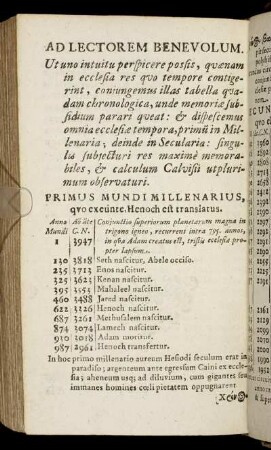 AD LECTOREM BENEVOLUM.
Ut uno intuitu perspicere possis, quænam
in ecclesia res quo tempore contige-
rint, conjungemus illas tabella qua-
dam chronologica, unde memoriæ sub-
sidium parari queat: & dispescemus
omnia ecclesiæ tempora, primū in Mil-
lenaria, deinde in Secularia: singu-
la subjecturi res maxime memora-
biles, & calculum Calvisii utpluri-
mum observaturi.
PRIMUS MUNDI MILLENARIUS,
qvo exeunte Henoch est translatus.
Anno Mundi
C. N.
Conjunctio superiorum planetarum magna in
trigono igneo, recurrens intra 795. annos,
1 3947 in qva Adam creatus est, tristis ecclesiæ pro-
pter lapsum.
130 3818 Seth nascitur, Abele occiso.
235 3713 Enos nascitur.
325 3623 Kenan nascitur.
395 3553 Mahaleel nascitur.
460 3488 Jared nascitur.
622 3326 Henoch nascitur.
687 3261 Methusalem nascitur.
874 3074 Lamech nascitur.
930 3018 Adam moritur.
987 2961 Henoch transfertur.
In hoc primo millenario aureum Hesiodi seculum erat in
paradiso; argenteum ante egressum Caini ex eccle-
sia; aheneum usq; ad diluvium, cum gigantes seu
immanes homines cœli pietatem oppugnarent.